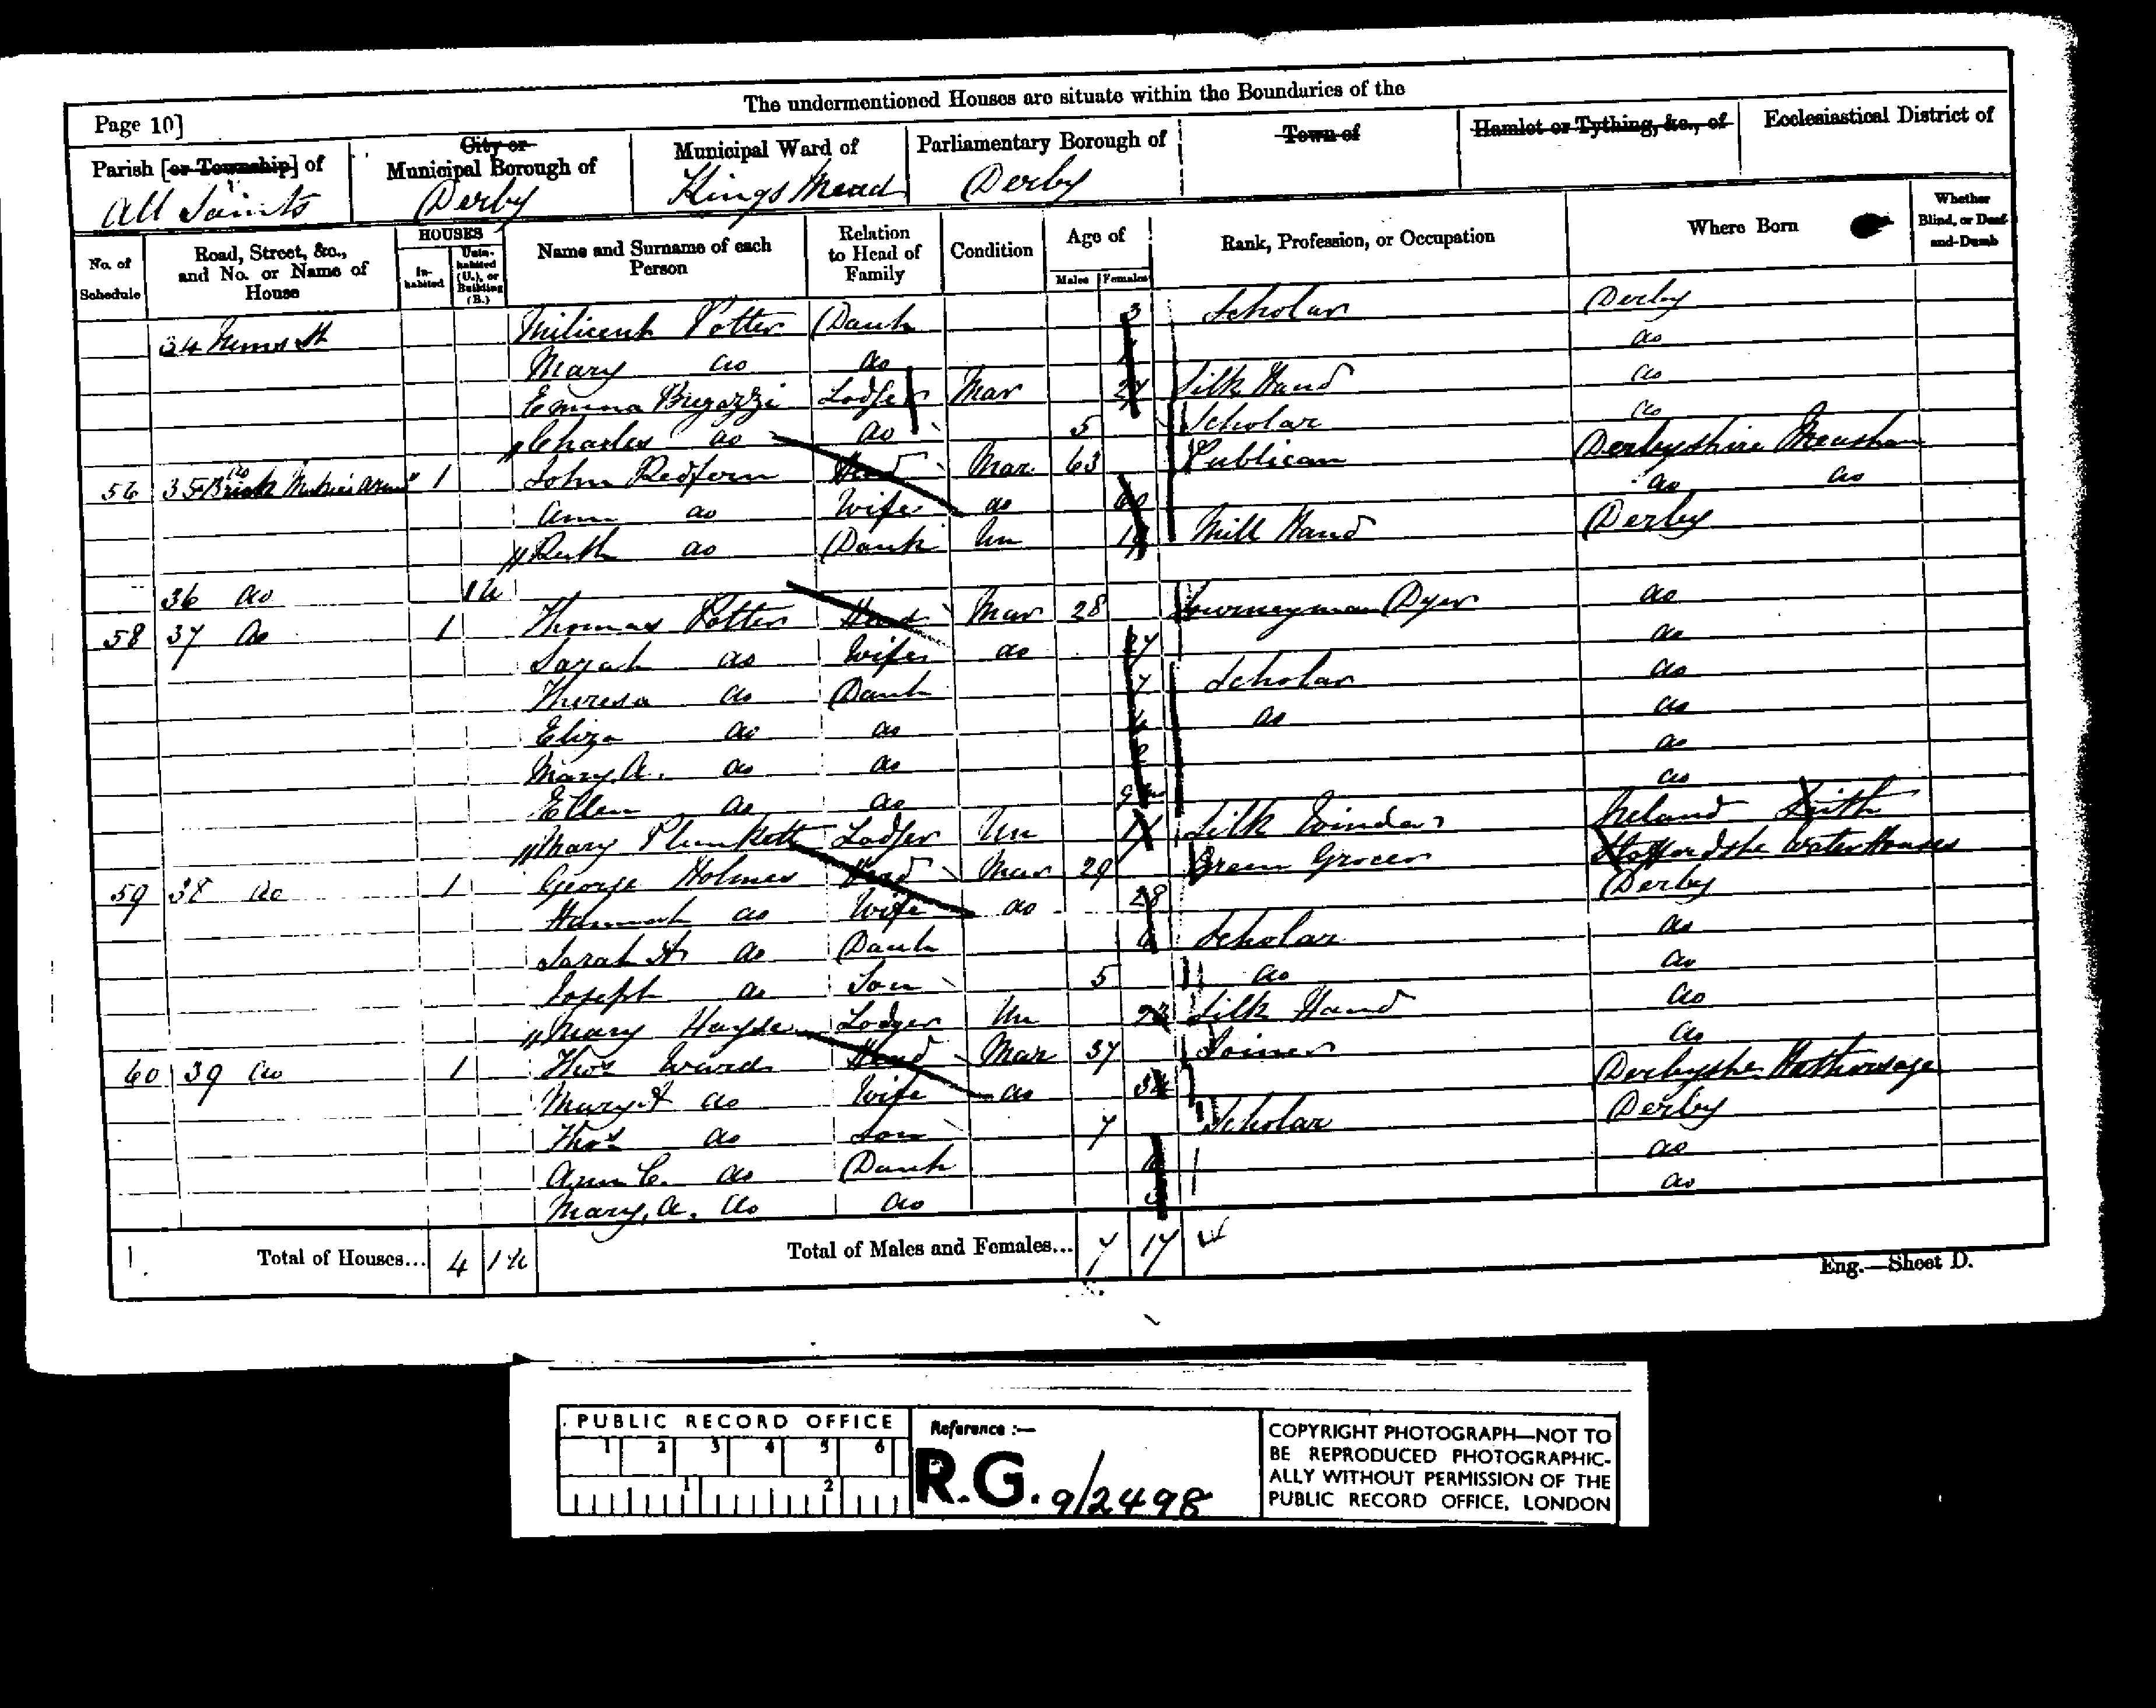 The undermentioned Houses are situate within the Boundaries of the
Page 10]
Parish [or Township] of
All Saints
City or Municipal Borough of
Derby
Municipal Ward of
Kings Mead
Parliamentary Borough of
Derby
Town of
Hamlet or Tything, &c., of
Ecclesiastical District of
No. of Schedule
Road, Street, &c., and No. or Name of House
HOUSES
In-habited
Unin-habited (U.), or Building (B.)
Name and Surname of each Person
Relation to Head of Family
Condition
Age of
Males Females
Rank, Profession, or Occupation
Where Born
Whether Blind, or Deaf-and-Dumb
34 St Milicent Potter Daur 3 Scholar Derby
Mary do do do
Emma Bregazzi Lodger Mar 27 Silk Hand do
Charles do do 5 Scholar do
56 35 1 John Redfern Head Mar 63 Publican Derbyshire Measham
Ann do Wife do 60 do do
Ruth do Daur Un Mill Hand Derby
36 do 1 U
58 37 do 1 Thomas Potter Head Mar 28 Journeyman Dyer do
Sarah do Wife do 27 do
Theresa do Daur 7 Scholar do
Eliza do do do do
Mary A. do do 2 do
Ellen do do 9 mo do
Mary Plunkett Lodger Un Silk Winder Ireland
59 38 do 1 George Holmes Head Mar 29 Green Grocer Staffordshe Water Houses
Hannah do Wife do 28 Derby
Sarah A do Daur 6 Scholar do
Joseph do Son 5 do do
Mary Lodger Un Silk Hand do
60 39 do 1 Thos Ward Head Mar 37 Joiner do
Mary A do Wife do 34 Derbyshe Hathersage
Thos do Son 7 Scholar Derby
Ann C. do Daur do
Mary, A. do do do
1. Total of Houses... 4 1 U Total of Males and Females... 7 17
Eng.—Sheet D.
PUBLIC RECORD OFFICE
1 2 3 4 5 6
1 2
Reference :—
R.G. 9/2498
COPYRIGHT PHOTOGRAPH—NOT TO
BE REPRODUCED PHOTOGRAPHIC-
ALLY WITHOUT PERMISSION OF THE
PUBLIC RECORD OFFICE, LONDON